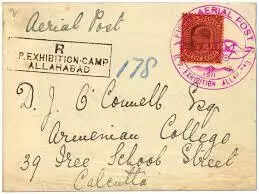 Aerial Post
R
P. EXHIBITION-CAMP
ALLAHABAD
178
AERIAL POST
EXHIBITION ALLAHABAD
D. J. O'Connell Esq.
Armenian College
39 Free School Street
Calcutta